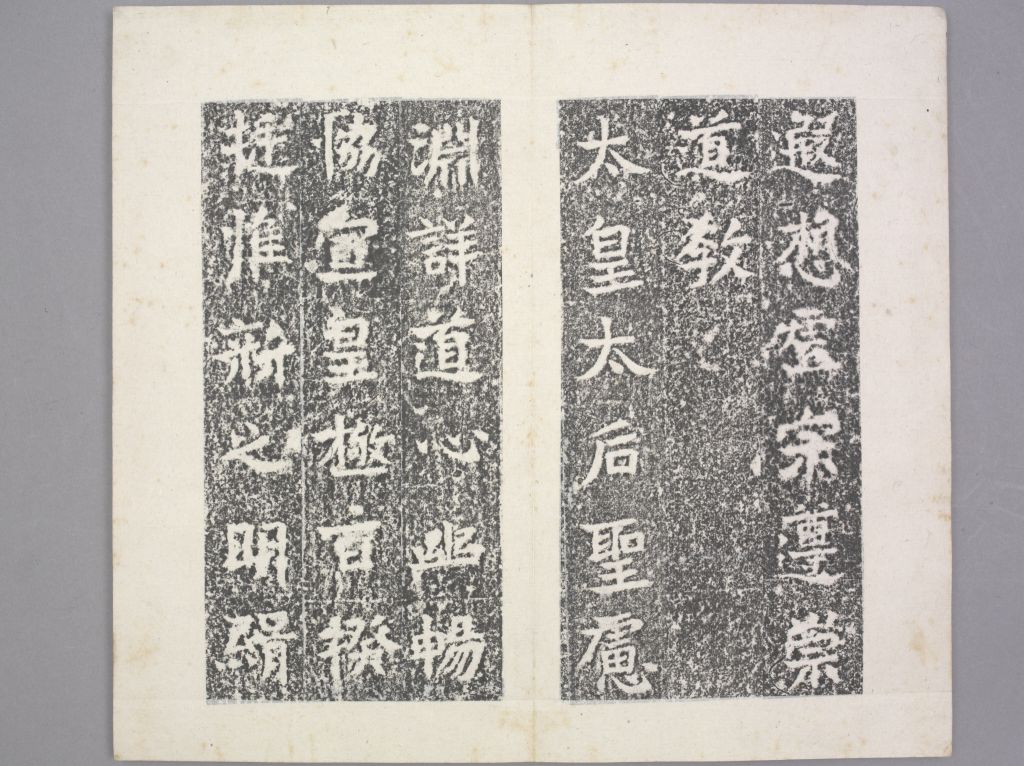 遐想虛宗遵崇
道教
太皇太后聖慮
淵詳道心幽暢
協宣皇極百揆
挺惟新之明緝